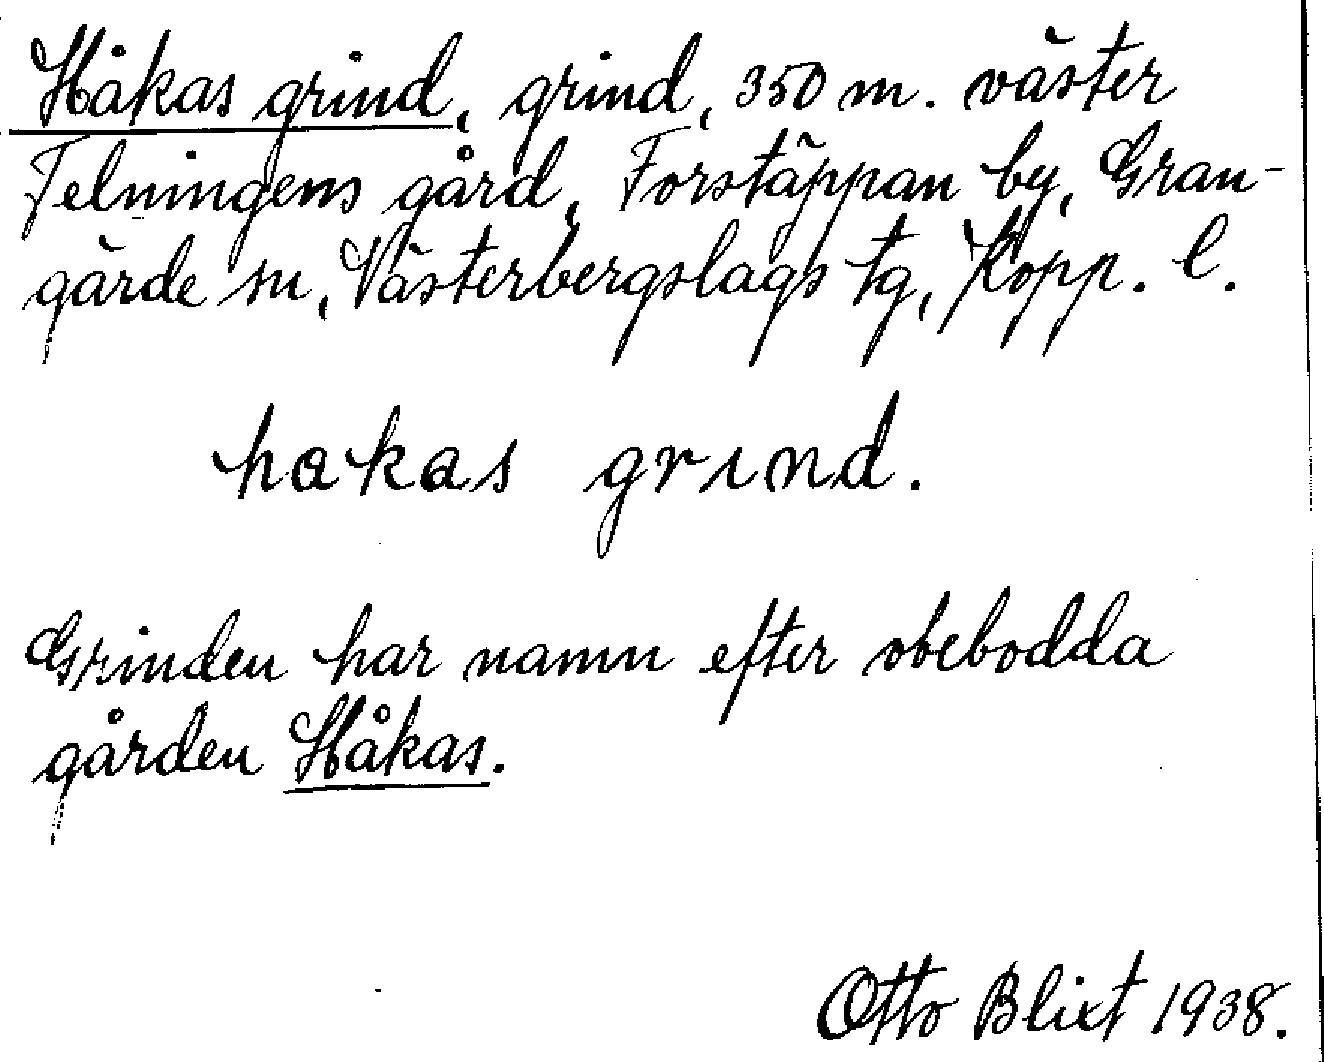 Håkas grind, grind, 350 m. väster
Felningens gård, Forstäppan by, Gran-
gärde sn, Västerbergslags tg, Kopp. l.
hakas grınd.
Grinden har namn efter obebodda
gården Håkas.
Otto Blixt 1938.